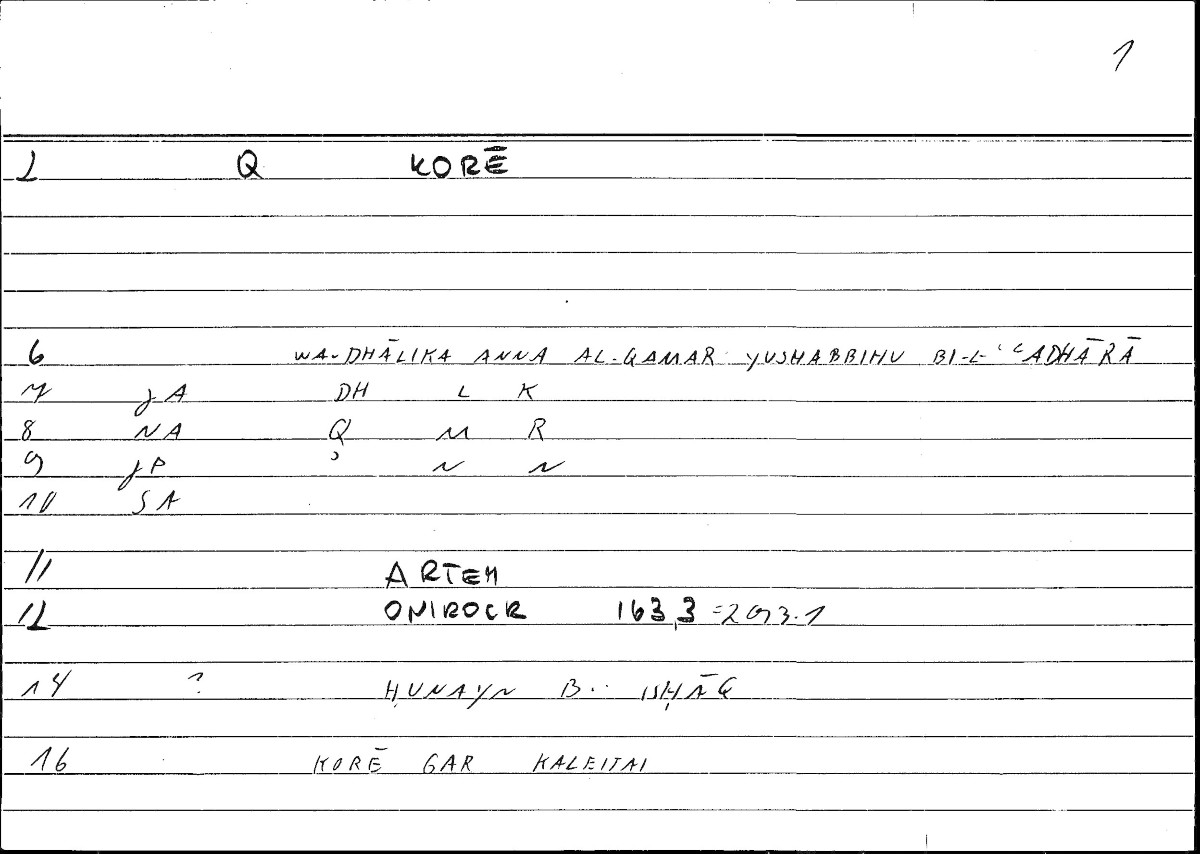 1
2 Q KORĒ
6 WA-DHĀLIKA ANNA AL-QAMAR YUSHABBIHU BI-L-ʿADHĀRĀ
7 JA DH L K
8 NA Q M R
9 JP ʾ N N
10 SA
11 ARTEM
12 ONIROCR 163,3 = 293.1
14 ? ḤUNAYN B.. ISḤĀQ
16 KORĒ GAR KALEITAI